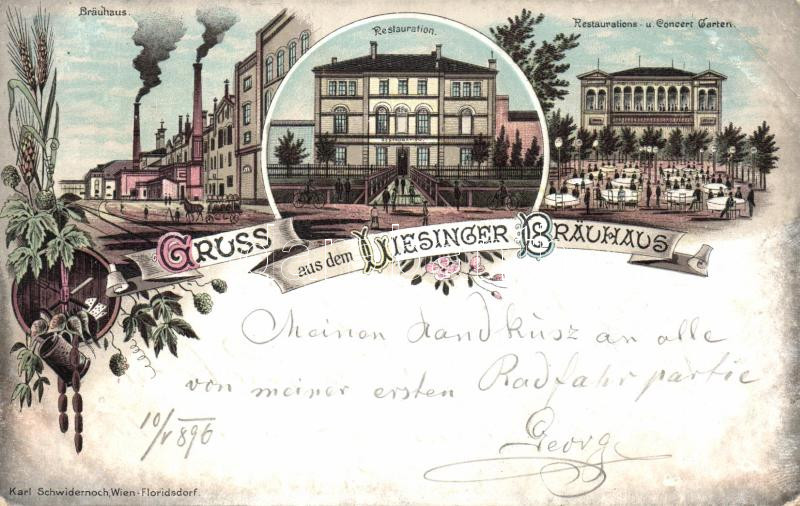 Bräuhaus.
Restauration.
Restaurations- u. Concert Garten.
GRUSS aus dem LIESINGER BRÄUHAUS
Meinen Handkusz an alle
von meiner ersten Radfahrpartie
10/V 896
George
Karl Schwidernoch, Wien-Floridsdorf.